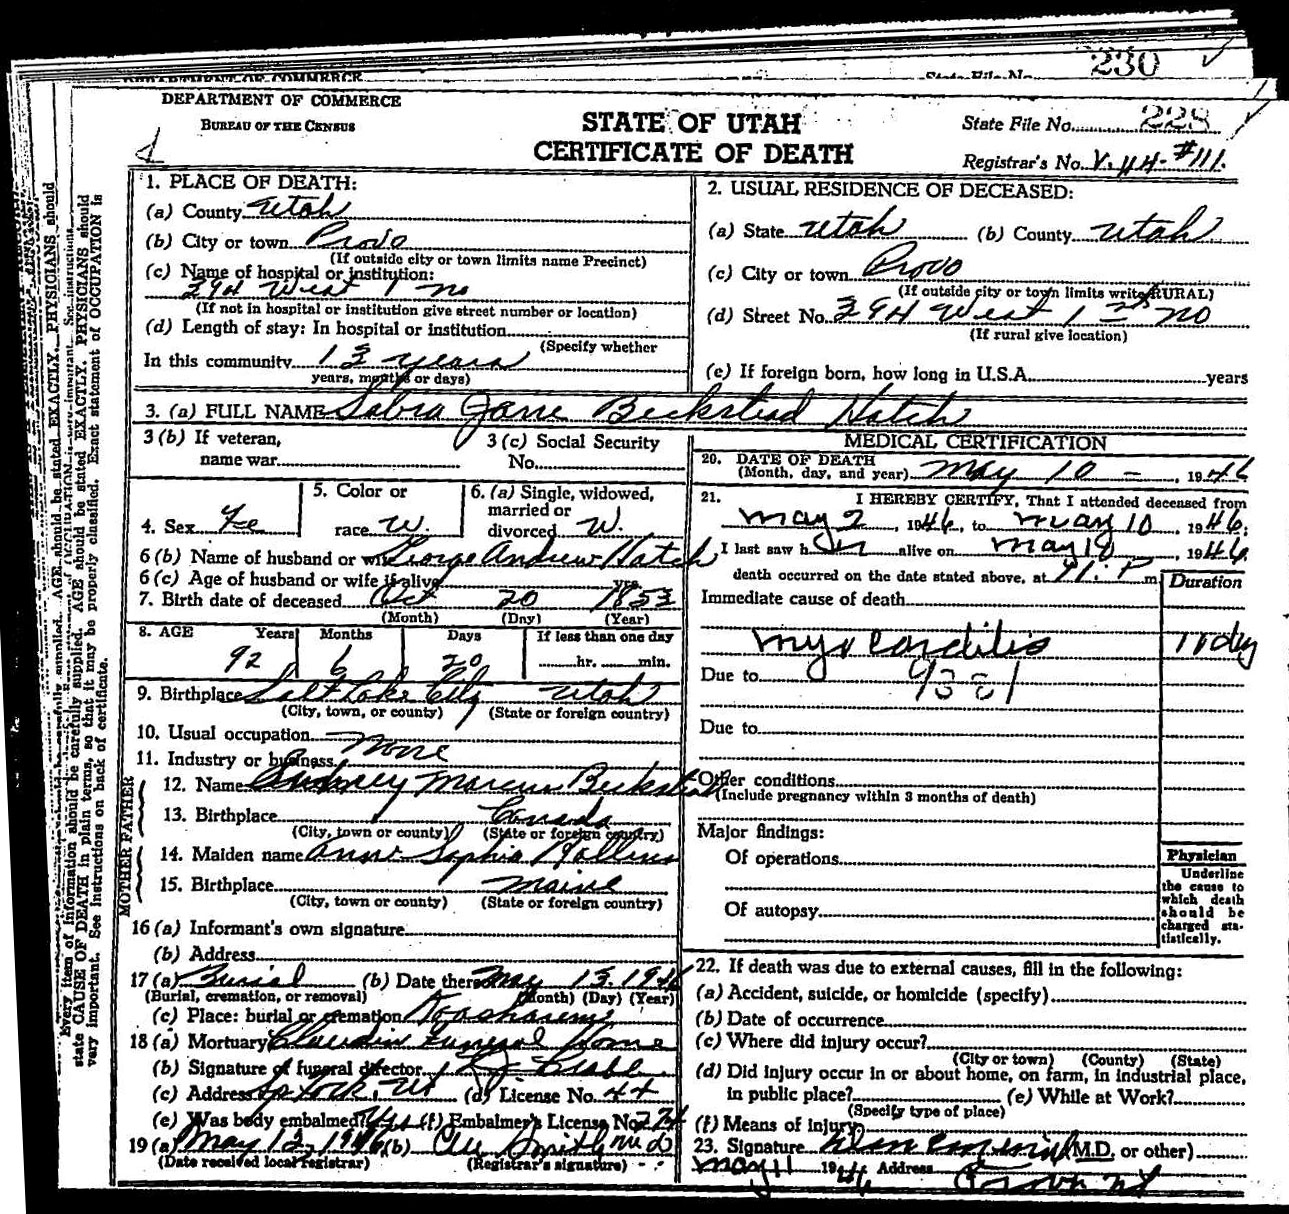 230
DEPARTMENT OF COMMERCE
State File No.
DEPARTMENT OF COMMERCE
BUREAU OF THE CENSUS
STATE OF UTAH
CERTIFICATE OF DEATH
State File No. 228
Registrar's No. V. 44- #111.
Every item of information should be carefully supplied. AGE should be stated EXACTLY. PHYSICIANS should
state CAUSE OF DEATH in plain terms, so that it may be properly classified. Exact statement of OCCUPATION is
very important. See instructions on back of certificate.
1. PLACE OF DEATH:
(a) County Utah
(b) City or town Provo
(If outside city or town limits name Precinct)
(c) Name of hospital or institution:
394 West 1 no
(If not in hospital or institution give street number or location)
(d) Length of stay: In hospital or institution
(Specify whether
In this community 13 years
years, months or days)
2. USUAL RESIDENCE OF DECEASED:
(a) State Utah (b) County Utah
(c) City or town Provo
(If outside city or town limits write RURAL)
(d) Street No. 394 West 1 no
(If rural give location)
(e) If foreign born, how long in U.S.A. years
3. (a) FULL NAME Sabra Jane Beckstead Hatch
3 (b) If veteran,
name war
3 (c) Social Security
No.
4. Sex Fe
5. Color or
race W.
6. (a) Single, widowed,
married or
divorced W.
6 (b) Name of husband or wife George Andrew Hatch
6 (c) Age of husband or wife if alive yrs.
7. Birth date of deceased Oct 20 1853
(Month) (Day) (Year)
8. AGE Years Months Days If less than one day
92 6 20 hr. min.
9. Birthplace Salt Lake City Utah
(City, town, or county) (State or foreign country)
10. Usual occupation None
11. Industry or business
FATHER
12. Name Sidney Marcus Beckstead
13. Birthplace Canada
(City, town or county) (State or foreign country)
MOTHER
14. Maiden name Ann Sophia Rollins
15. Birthplace Maine
(City, town or county) (State or foreign country)
16 (a) Informant's own signature
(b) Address
17 (a) Burial (b) Date thereof May 13, 1946
(Burial, cremation, or removal) (Month) (Day) (Year)
(c) Place: burial or cremation Koosharem
18 (a) Mortuary Claudin Funeral Home
(b) Signature of funeral director
(c) Address Sp. Fork, Ut (d) License No. 44
(e) Was body embalmed? Yes (f) Embalmer's License No. 224
19 (a) May 12, 1946 (b) Smith md
(Date received local registrar) (Registrar's signature)
MEDICAL CERTIFICATION
20. DATE OF DEATH
(Month, day, and year) May 10 - , 1946
21. I HEREBY CERTIFY, That I attended deceased from
May 2, 1946, to May 10, 1946;
I last saw her alive on May 10, 1946
death occurred on the date stated above, at 11: P m
Duration
Immediate cause of death
Myocarditis
Due to
Due to
Other conditions
(Include pregnancy within 3 months of death)
Major findings:
Of operations
Of autopsy
Physician
Underline
the cause to
which death
should be
charged sta-
tistically.
22. If death was due to external causes, fill in the following:
(a) Accident, suicide, or homicide (specify)
(b) Date of occurrence
(c) Where did injury occur?
(City or town) (County) (State)
(d) Did injury occur in or about home, on farm, in industrial place,
in public place? (e) While at Work?
(Specify type of place)
(f) Means of injury
23. Signature (M.D. or other)
May 11 1946 Address Provo Ut